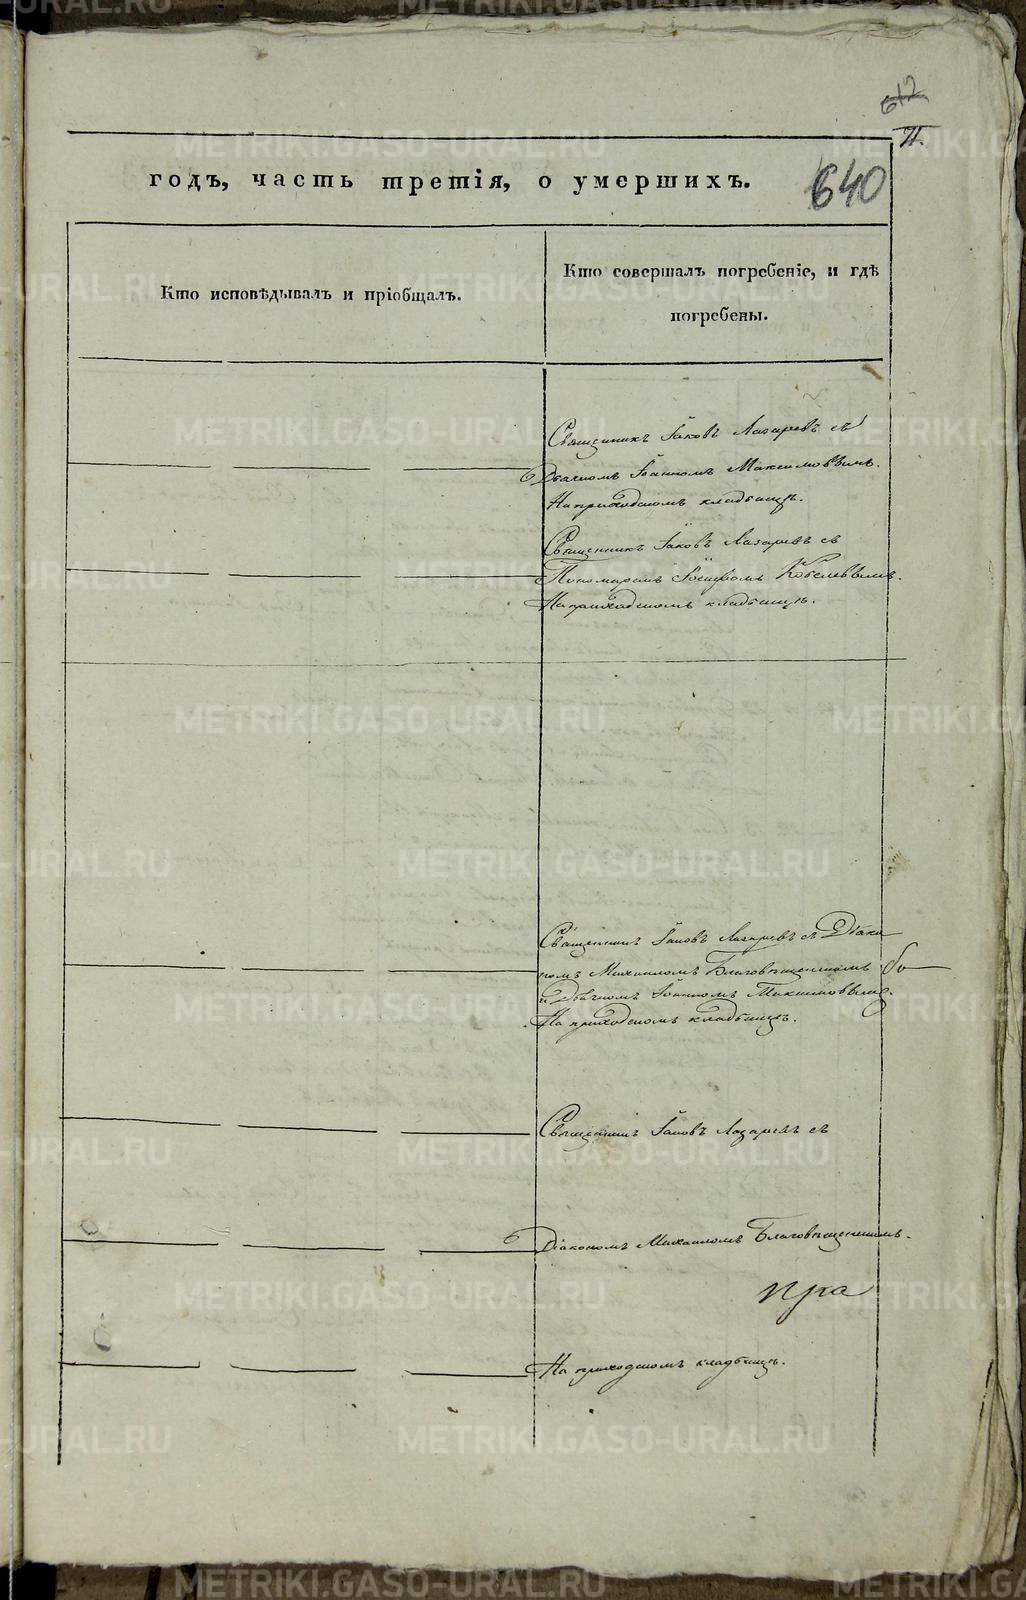 617
71.
годъ, часть третія, о умершихъ.
640
Кто исповѣдывалъ и пріобщалъ.
Кто совершалъ погребеніе, и гдѣ
погребены.
Священникъ Іаковъ Лазаревъ съ
Дьячкомъ Іоанномъ Максимовымъ.
На приходскомъ кладбищѣ.
Священникъ Іаковъ Лазаревъ съ
Пономаремъ Іосифомъ Кобелевымъ.
На приходскомъ кладбищѣ.
Священникъ Іаковъ Лазаревъ съ Діако
номъ Михаиломъ Благовѣщенскимъ
и Дьячкомъ Іоанномъ Максимовымъ.
На приходскомъ кладбищѣ.
Священникъ Іаковъ Лазаревъ съ
Діакономъ Михаиломъ Благовѣщенскимъ.
На приходскомъ кладбищѣ.
METRIKI.GASO-URAL.RU